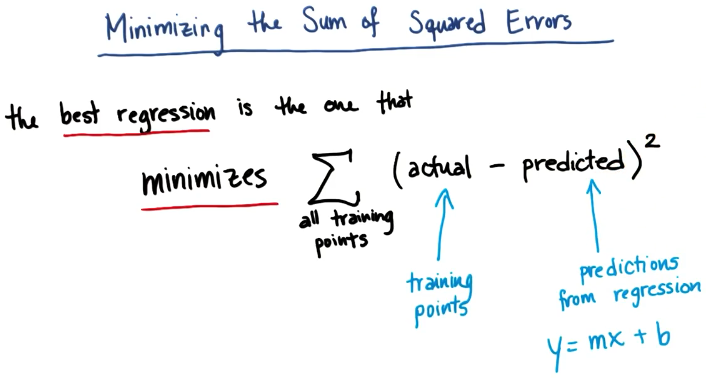 Minimizing the Sum of Squared Errors
the best regression is the one that
minimizes ∑ (actual - predicted)²
all training
points
training
points
predictions
from regression
y = mx + b